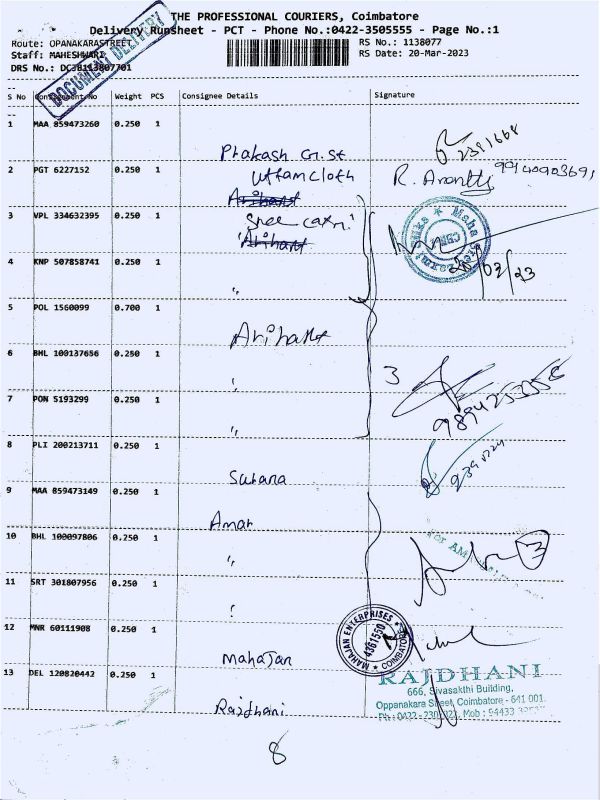 THE PROFESSIONAL COURIERS, Coimbatore
Delivery Runsheet - PCT - Phone No.:0422-3505555 - Page No.:1
Route: OPANAKARASTREET
Staff: MAHESHWARI
DRS No.: DC38113807701
RS No.: 1138077
RS Date: 20-Mar-2023
DOCUMENT DELIVERY
S No Consignment No Weight PCS Consignee Details Signature
1 MAA 859473260 0.250 1
Prakash G.St
2 PGT 6227152 0.250 1 Uttam Cloth
R. Ananth 9940903691
Arihant
3 VPL 334632395 0.250 1 Sree
Arihant
4 KNP 507858741 0.250 1
20/03/23
"
5 POL 1560099 0.700 1
Arihant
6 BHL 100137656 0.250 1
3
"
7 PON 5193299 0.250 1
"
8 PLI 200213711 0.250 1
Sahana
9 MAA 859473149 0.250 1
Amar
10 BHL 100097806 0.250 1
"
3
11 SRT 301807956 0.250 1
"
12 MNR 60111908 0.250 1
MAHAJAN ENTERPRISES
4381550
COIMBATORE
Mahajan
13 DEL 120820442 0.250 1
RAJDHANI
666, Sivasakthi Building,
Oppanakara Street, Coimbatore - 641 001.
Rajdhani
8